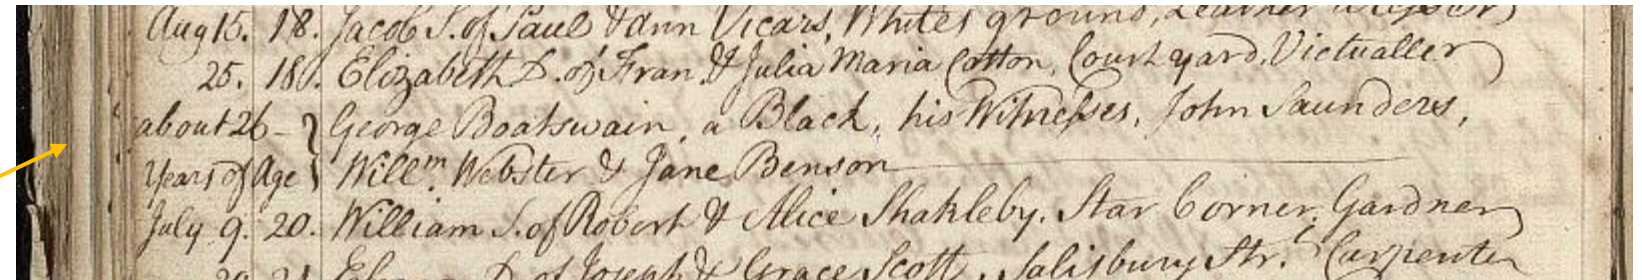 Aug 15. 18. Jacob S. of Paul & Ann Vicars, Whites ground, Leather Dresser
25. 18. Elizabeth D. of Fran. & Julia Maria Cotton, Court yard, Victualler
about 26 - } George Boatswain, a Black, his Witnesses, John Saunders,
Years of Age } Will.m Webster & Jane Benson
July 9. 20. William S. of Robert & Alice Shakleby. Star Corner, Gardner
D. of Joseph & Grace Scott, Salisbury Str. Carpenter